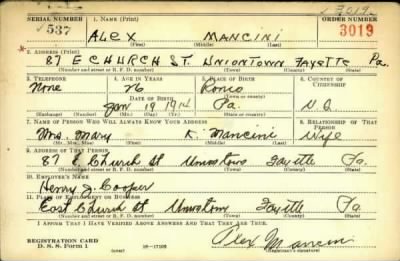 SERIAL NUMBER 1. NAME (Print) ORDER NUMBER
537 ALEX MANCINI 3019
(First) (Middle) (Last)
2. ADDRESS (Print)
87 E CHURCH ST. UNIONTOWN FAYETTE Pa.
(Number and street or R. F. D. number) (Town) (County) (State)
3. TELEPHONE 4. AGE IN YEARS 5. PLACE OF BIRTH 6. COUNTRY OF CITIZENSHIP
None 26 Ronco
DATE OF BIRTH
Jan 19 1914 Pa. U.S.
(Exchange) (Number) (Mo.) (Day) (Yr.) (State or country)
7. NAME OF PERSON WHO WILL ALWAYS KNOW YOUR ADDRESS 8. RELATIONSHIP OF THAT PERSON
Mrs. Mary K. Mancini Wife
(Mr., Mrs., Miss) (First) (Middle) (Last)
9. ADDRESS OF THAT PERSON
87 E. Church St Uniontown Fayette Pa.
(Number and street or R. F. D. number) (Town) (County) (State)
10. EMPLOYER'S NAME
Henry J. Cooper
11. PLACE OF EMPLOYMENT OR BUSINESS
East Church St Uniontown Fayette Pa.
(Number and street or R. F. D. number) (Town) (County) (State)
I AFFIRM THAT I HAVE VERIFIED ABOVE ANSWERS AND THAT THEY ARE TRUE.
REGISTRATION CARD
D. S. S. Form 1 16-17105 Alex Mancini
(Registrant's signature)